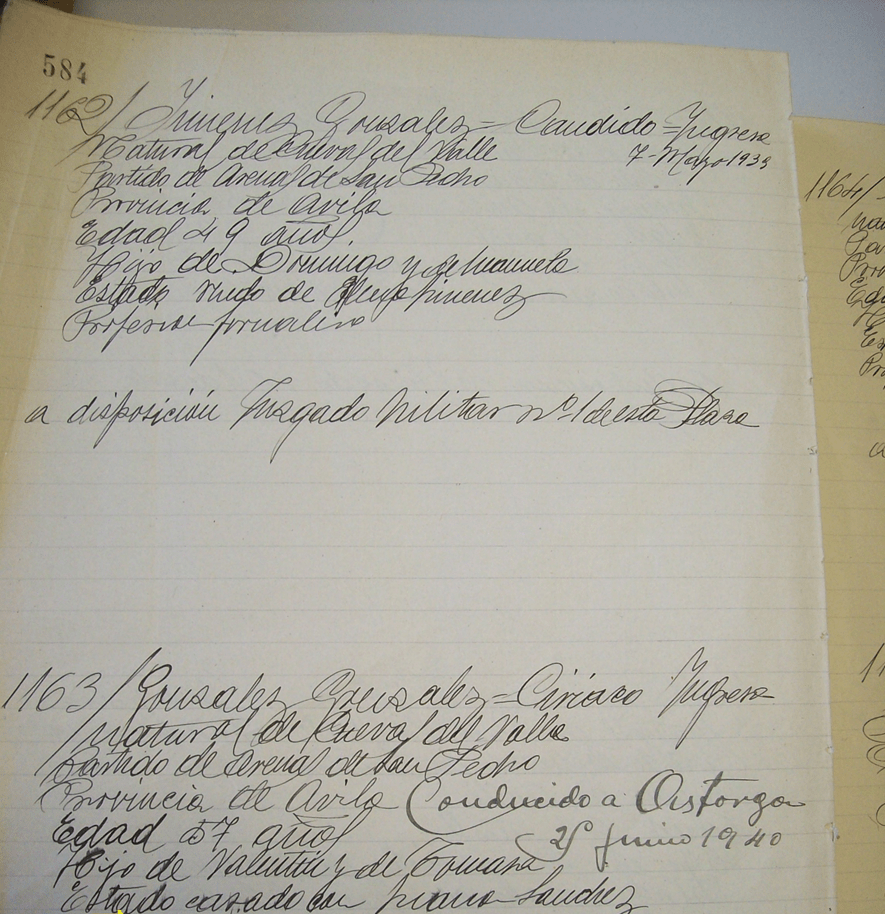 584
1162/ Jimenez Gonzalez = Candido = Ingresa
Natural de Cuevas del Valle 7-Mayo 1939
Partido de Arenas de San Pedro
Provincia de Avila
Edad 49 años
Hijo de Domingo y de Manuela
Estado viudo de Jimenez
Profesion jornalero
a disposición Juzgado Militar nº 1 de esta Plaza
1163/ Gonzalez Gonzalez = Ciriaco Ingresa
Natural de Cuevas del Valle
Partido de Arenas de San Pedro
Provincia de Avila Conducido a Astorga
Edad 57 años Junio 1940
Hijo de Valentin y de Tomasa
Estado casado con Juana Sanchez
1164/